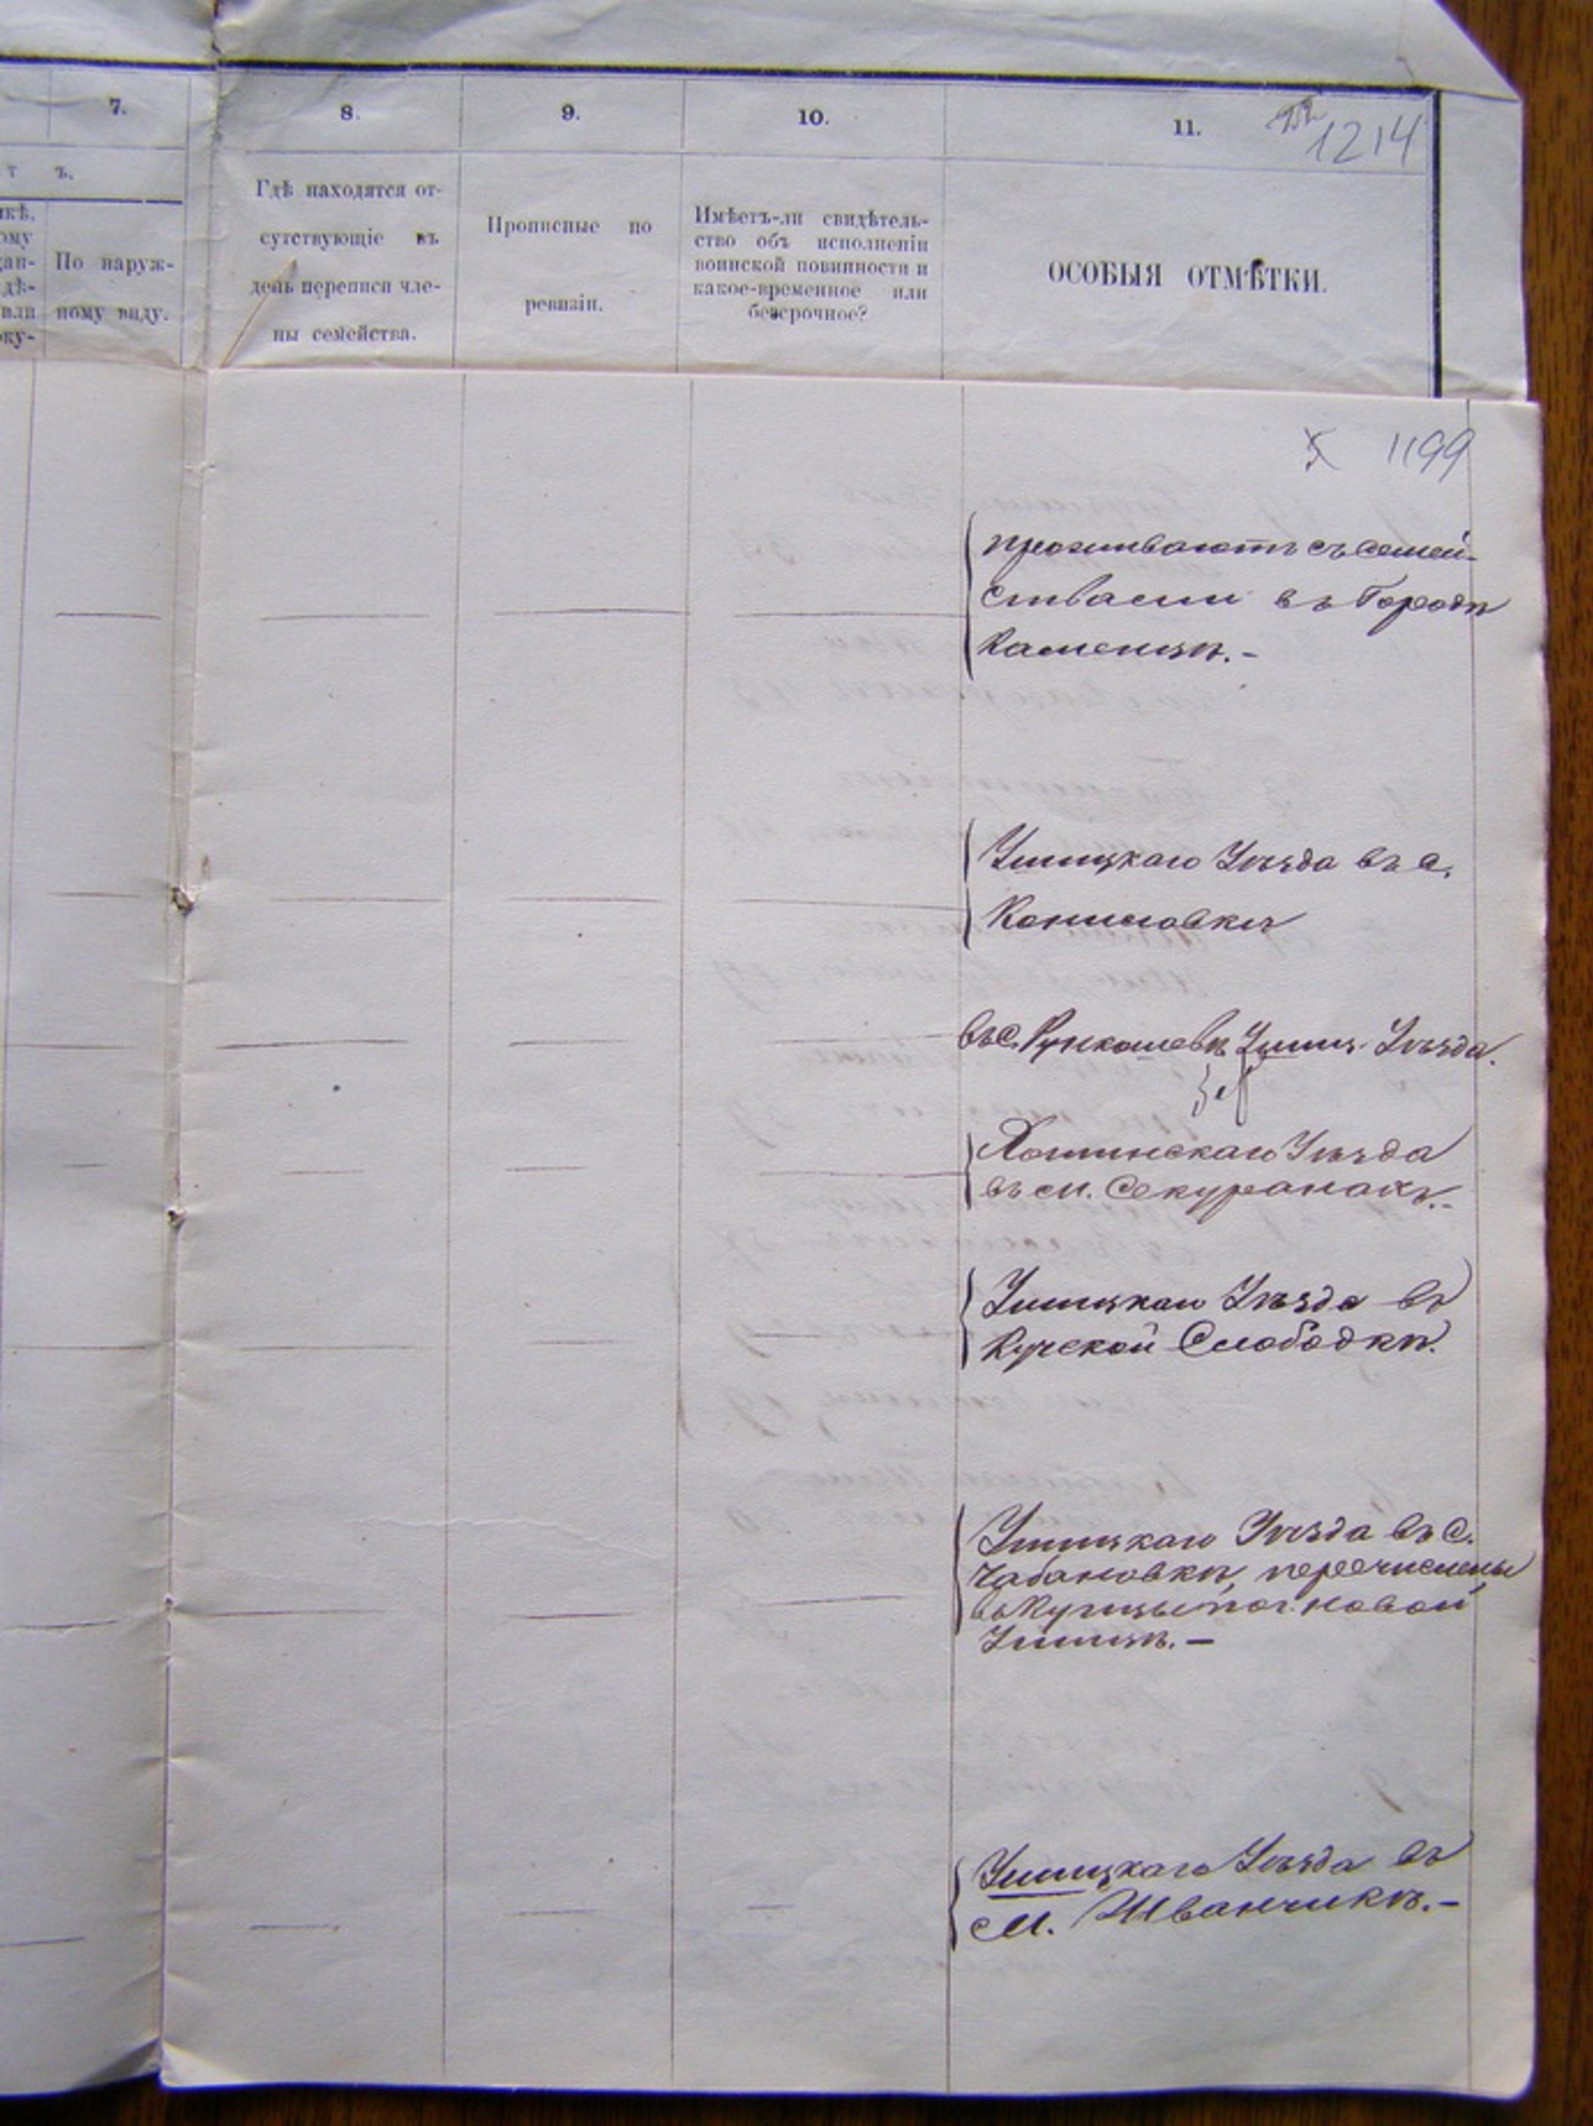 7.
8.
9.
10.
11.
1214
т ъ.
По наруж-
ному виду.
Гдѣ находятся от-
сутствующіе въ
день переписи чле-
ны семейства.
Прописные по
ревизіи.
Имѣетъ-ли свидѣтель-
ство объ исполненіи
воинской повинности и
какое-временное или
безсрочное?
ОСОБЫЯ ОТМѢТКИ.
1199
проживаютъ съ семей-
ствами въ Городѣ
Каменцѣ.-
Ушицкаго Уѣзда въ с.
въ с. Рункошевѣ Ушиц. Уѣзда.
Хотинскаго Уѣзда
въ м. Секуранахъ.-
Ушицкаго Уѣзда въ
Кучской Слободкѣ.
Ушицкаго Уѣзда въ с.
Чабановкѣ, перечислены
въ Купцы по г. Новой
Ушицѣ.-
Ушицкаго Уѣзда въ
м. Жванчикѣ.-